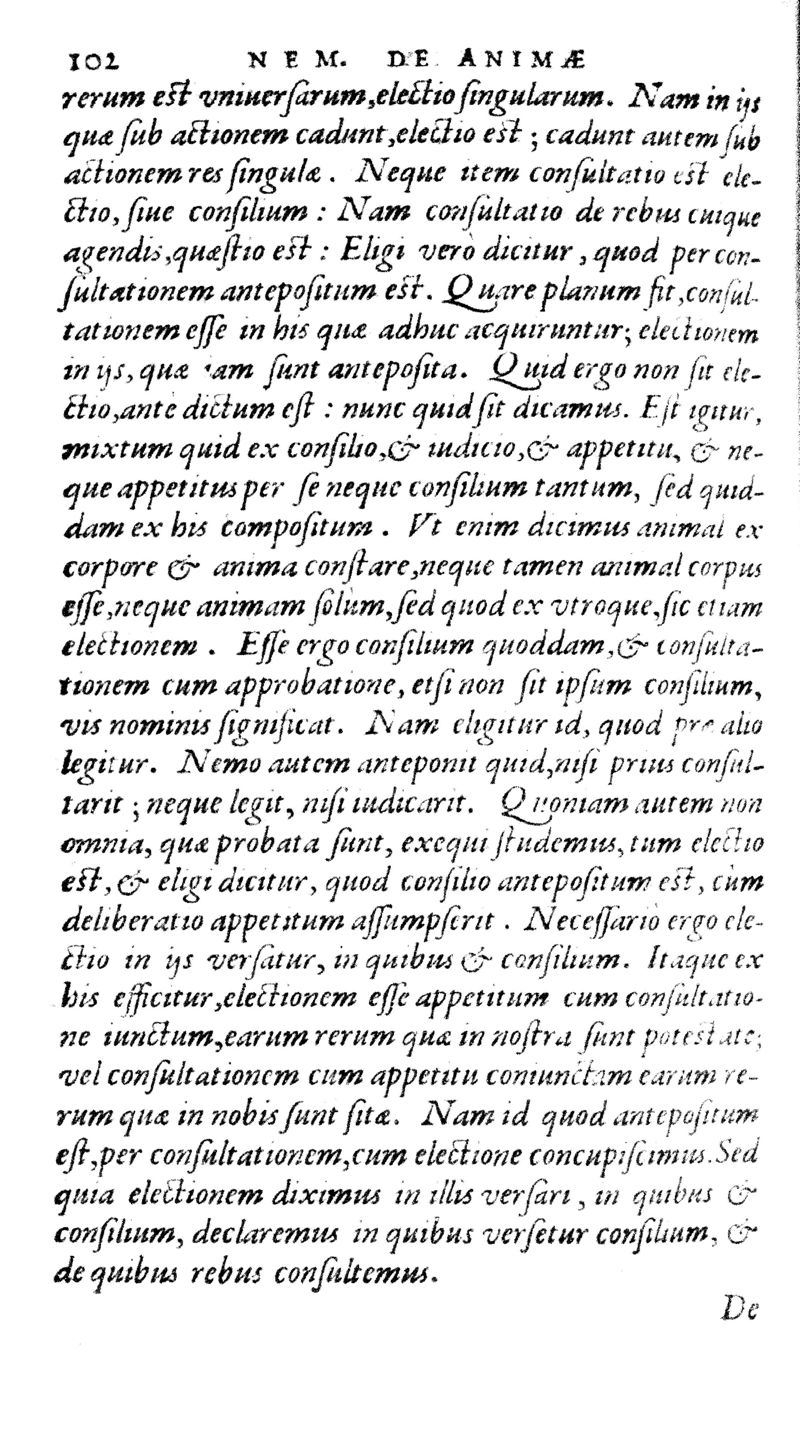 102 NEM. DE ANIMÆ
rerum est vniuersarum, electio singularum. Nam in ijs
quæ sub actionem cadunt, electio est ; cadunt autem sub
actionem res singulæ . Neque item consultatio est ele-
ctio, siue consilium : Nam consultatio de rebus cuique
agendis, quæstio est : Eligi verò dicitur , quod per con-
sultationem antepositum est. Quare planum fit, consul-
tationem esse in his quæ adhuc acquiruntur; electionem
in ijs, quæ iam sunt anteposita. Quid ergo non sit ele-
ctio, ante dictum est : nunc quid sit dicamus. Est igitur,
mixtum quid ex consilio, & iudicio, & appetitu, & ne-
que appetitus per se neque consilium tantum, sed quid-
dam ex his compositum . Vt enim dicimus animal ex
corpore & anima constare, neque tamen animal corpus
esse, neque animam solum, sed quod ex vtroque, sic etiam
electionem . Esse ergo consilium quoddam, & consulta-
tionem cum approbatione, etsi non sit ipsum consilium,
vis nominis significat. Nam eligitur id, quod præ alio
legitur. Nemo autem anteponit quid, nisi prius consul-
tarit ; neque legit, nisi iudicarit. Quoniam autem non
omnia, quæ probata sunt, exequi studemus, tum electio
est, & eligi dicitur, quod consilio antepositum est, cùm
deliberatio appetitum assumpserit . Necessariò ergo ele-
ctio in ijs versatur, in quibus & consilium. Itaque ex
his efficitur, electionem esse appetitum cum consultatio-
ne iunctum, earum rerum quæ in nostra sunt potestate;
vel consultationem cum appetitu coniunctam earum re-
rum quæ in nobis sunt sitæ. Nam id quod antepositum
est, per consultationem, cum electione concupiscimus. Sed
quia electionem diximus in illis versari , in quibus &
consilium, declaremus in quibus versetur consilium, &
de quibus rebus consultemus.
De